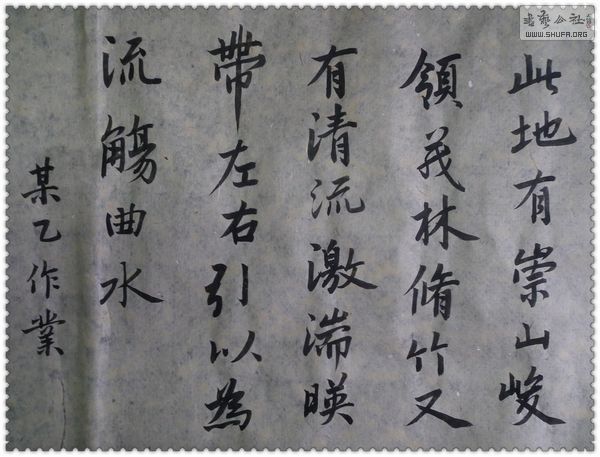 此地有崇山峻
領茂林脩竹又
有清流激湍暎
帶左右引以為
流觴曲水
某乙作業
书艺公社
WWW.SHUFA.ORG